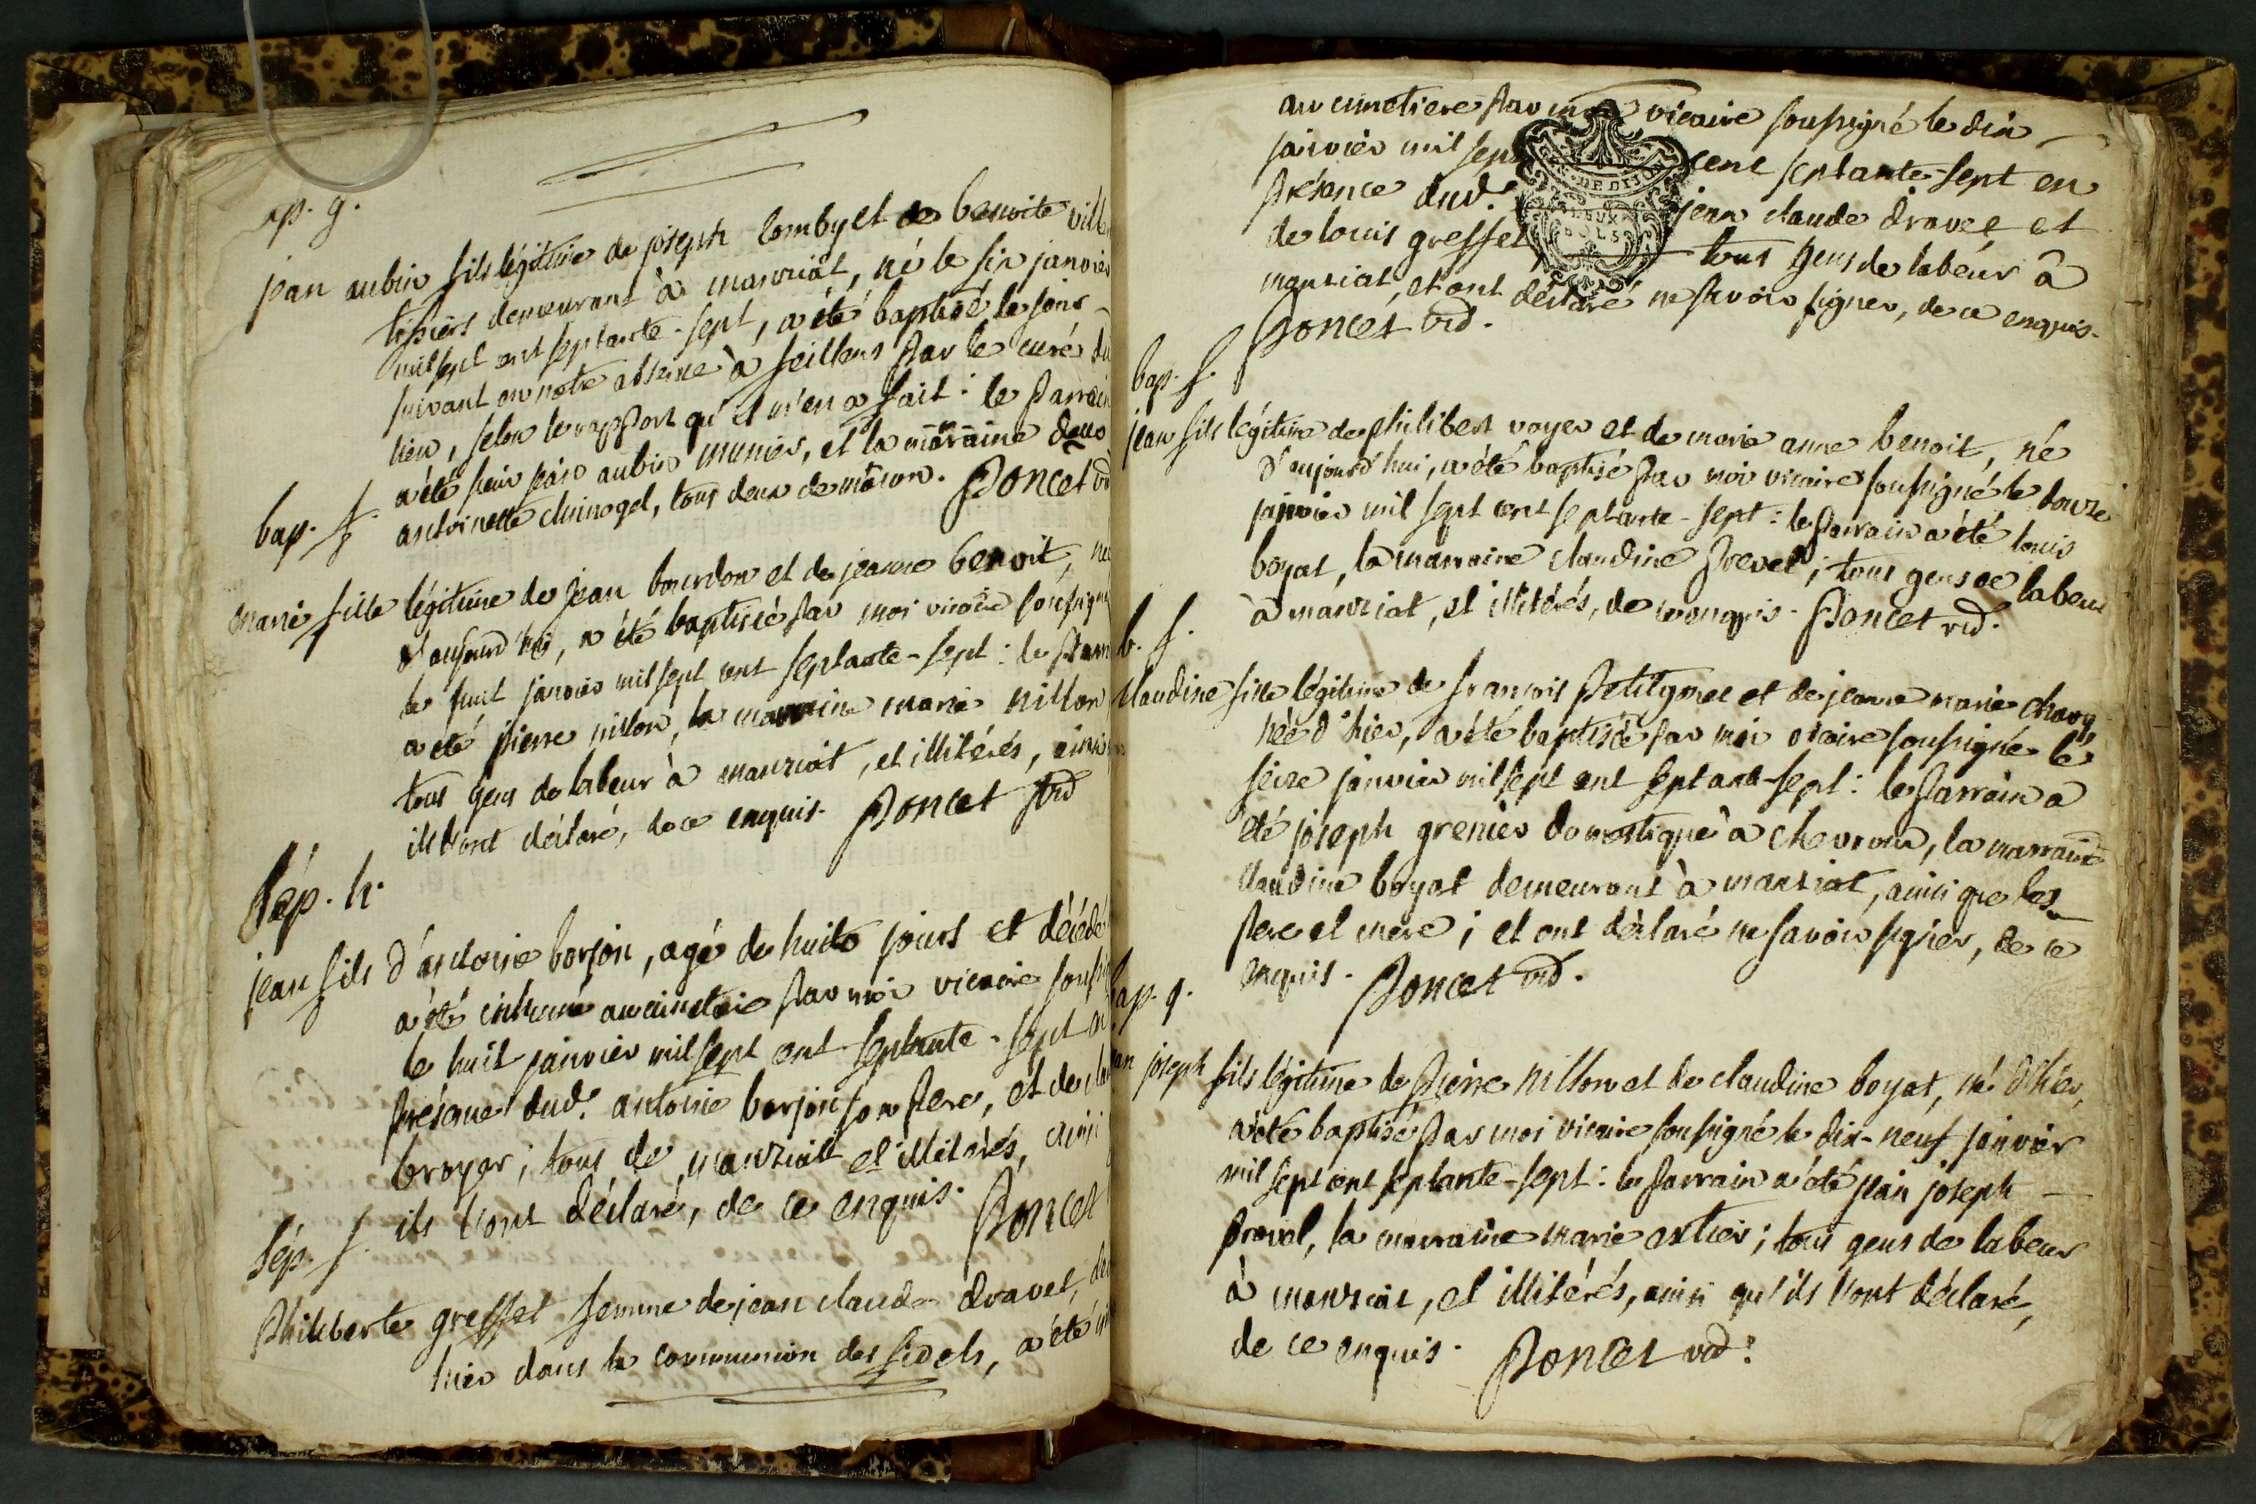 ap. g.
jean aubin fils légitime de joseph comby et de benoite
tissiers demeurant à manziat, né le six janvier
mil sept cent septante-sept, a été baptisé le jour
suivant en notre absence à feillens par le curé du
lieu, selon le rapport qu'il m'en a fait : le parrain
a été sieur jean aubin munier, et la marraine
antoinette chinogel, tous deux de mâcon. Poncet vic
bap. f.
marie fille légitime de jean bourdon et de jeanne benoit, née
d'aujourd'hui, a été baptisée par moi vicaire soussigné
le huit janvier mil sept cent septante-sept : le parrain
a été pierre nillon, la marraine marie nillon
tous gens de labeur à manziat, et illitérés, ainsi
ils l'ont déclaré, de ce enquis. Poncet vic
Sép. h.
jean fils d'antoine borjon, agé de huit jours et décédé
a été inhumé au cimetiere par moi vicaire soussigné
le huit janvier mil sept cent septante-sept en
présence dud. antoine borjon son pere, et de
broyer ; tous de manziat et illitérés, ainsi
ils l'ont déclaré, de ce enquis. Poncet
Sép. f.
Philiberte greffet femme de jean claude dravet,
hier dans la communion des fidels, a été
au cimetiere par moi vicaire soussigné le dix
janvier mil sept cent septante-sept en
présence dud. jean claude dravet et
de louis greffet, tous gens de labeur à
manziat, et ont déclaré ne savoir signer, de ce enquis.
Poncet vic.
GEN. DE DIJON
DEUX
SOLS
bap. g.
jean fils légitime de philibert voyer et de marie anne benoit, né
d'aujourd'hui, a été baptisé par moi vicaire soussigné le douze
janvier mil sept cent septante-sept : le parrain a été louis
boyat, la marraine claudine prevel ; tous gens de labeur
à manziat, et illitérés, de ce enquis. Poncet vic.
b. f.
Claudine fille légitime de francois Petitjonet et de jeanne marie
née d'hier, a été baptisée par moi vicaire soussigné le
seize janvier mil sept cent septante-sept : le parrain a
été joseph grenier domestique à chevroux, la marraine
claudine boyat demeurant à manziat, ainsi que les
pere et mere ; et ont déclaré ne savoir signer, de ce
enquis. Poncet vic.
bap. g.
jean joseph fils légitime de pierre nillon et de claudine boyat, né d'hier,
a été baptisé par moi vicaire soussigné le dix-neuf janvier
mil sept cent septante-sept : le parrain a été jean joseph
preval, la marraine marie ; tous gens de labeur
à manziat, et illitérés, ainsi qu'ils l'ont déclaré,
de ce enquis. Poncet vic.